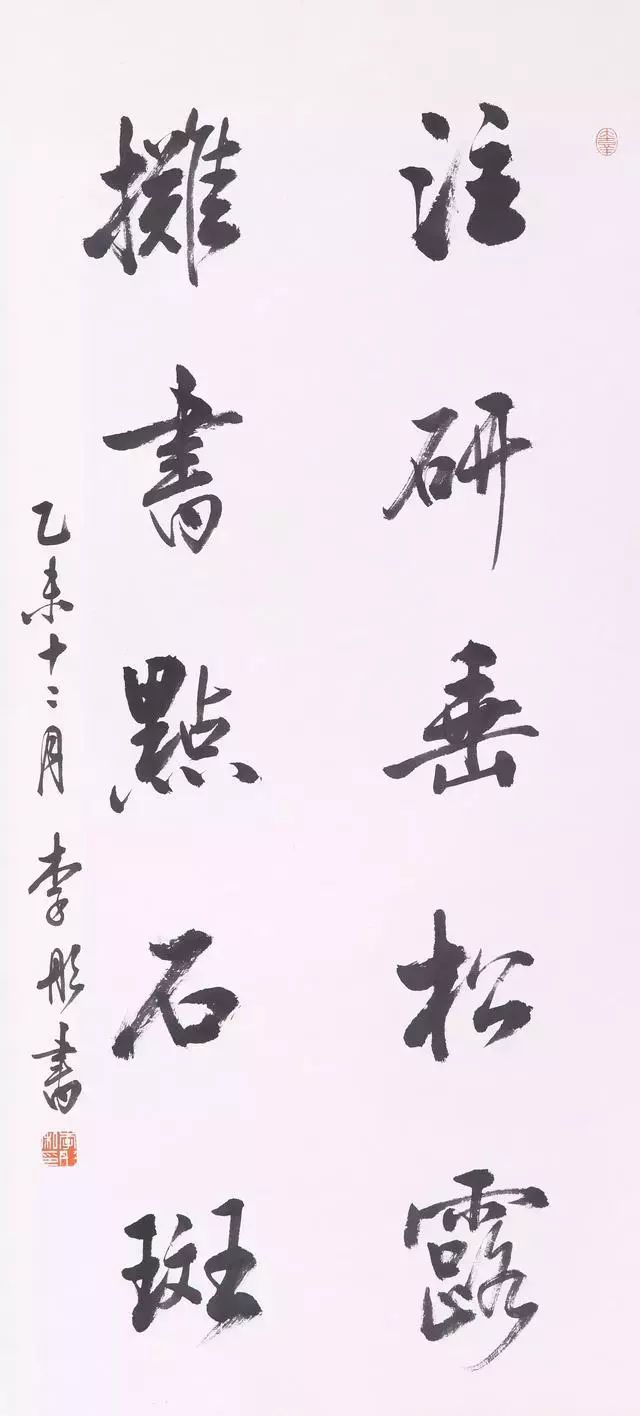 注研垂松露
攤書點石斑
乙未十二月 李彤書